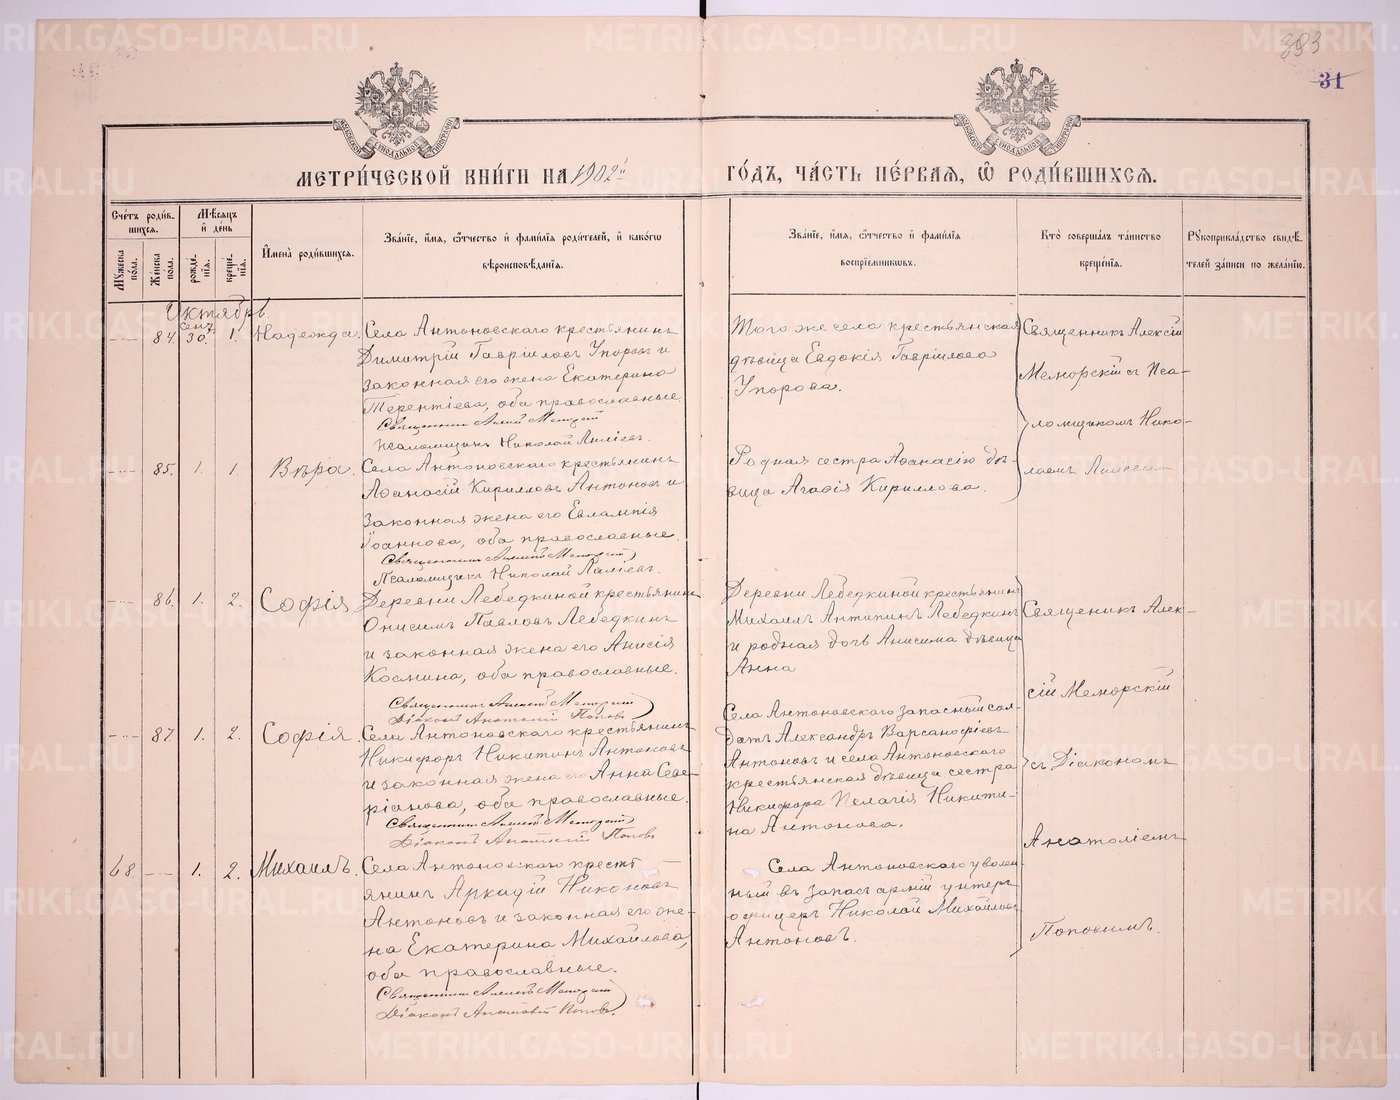 393
31
МЕТРИ́ЧЕСКОЙ КНИ́ГИ НА 1902й ГО́ДЪ, ЧА́СТЬ ПЕ́РВАЯ, Ѡ РОДИ́ВШИХСЯ.
Сче́тъ роди́в-
шихся.
Мꙋ́жеска по́ла.
Же́нска по́ла.
Мѣ́сяцъ
и́ де́нь
рожде́-
нїя.
креще́-
нїя.
И́мена̀ роди́вшихся.
Зва́нїе, и́мя, ѻ́тчество и́ фами́лїя роди́телей, и́ како́гѡ
вѣроисповѣ́данїя.
Зва́нїе, и́мя, ѻ́тчество и́ фами́лїя
воспрїе́мниковъ.
Кто̀ соверша́лъ та́инство
креще́нїя.
Рꙋкоприкла́дство свидѣ́-
телей за́писи по жела́нїю.
Октябрь.
84. сент. 30. 1. Надежда.
Села Антоновскаго крестьянинъ
Димитрій Гавріиловъ Упоровъ и
законная его жена Екатерина
Терентіева, оба православные.
Священникъ Алексій Меморскій
Псаломщикъ Николай
Того же села крестьянская
дѣвица Евдокія Гавріилова
Упорова.
Священникъ Алексій
Меморскій съ Пса-
ломщикомъ Нико-
лаемъ
85. 1. 1. Вѣра.
Села Антоновскаго крестьянинъ
Аѳанасій Кирилловъ Антоновъ и
законная жена его Евлампія
Іоаннова, оба православные.
Священникъ Алексій Меморскій
Псаломщикъ Николай
Родная сестра Аѳанасію дѣ-
вица Агафія Кириллова.
86. 1. 2. Софія.
Деревни Лебедкиной крестьянинъ
Онисимъ Павловъ Лебедкинъ
и законная жена его Анисія
Космина, оба православные.
Священникъ Алексій Меморскій
Діаконъ Анатолій Поповъ
Деревни Лебедкиной крестьянинъ
Михаилъ Антипинъ Лебедкинъ
и родная дочь Анисима дѣвица
Анна
Священикъ Алек-
сій Меморскій
съ Діакономъ
Анатоліемъ
Поповымъ.
87. 1. 2. Софія.
Села Антоновскаго крестьянинъ
Никифоръ Никитинъ Антоновъ
и законная жена его Анна Севе-
ріанова, оба православные.
Священникъ Алексій Меморскій
Діаконъ Анатолій Поповъ
Села Антоновскаго запасный сол-
датъ Александръ Варсанофіевъ
Антоновъ и села Антоновскаго
крестьянская дѣвица сестра
Никифора Пелагія Никити-
на Антонова.
68. 1. 2. Михаилъ.
Села Антоновскаго кресть
янинъ Аркадій Никоновъ
Антоновъ и законная его же-
на Екатерина Михайлова,
оба православные.
Священникъ Алексій Меморскій
Діаконъ Анатолій Поповъ.
Села Антоновскаго уволен-
ный въ запасъ арміи унтеръ
офицеръ Николай Михайловъ
Антоновъ.
METRIKI.GASO-URAL.RU